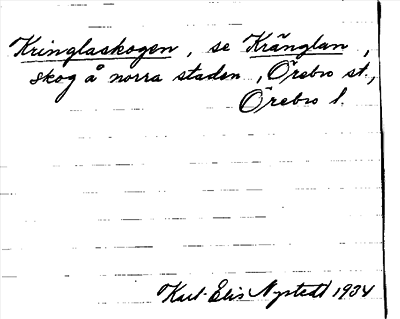 Kringlaskogen, se Kränglan,
skog å norra staden, Örebro st.,
Örebro l.
Karl-Elis Nystedt 1934